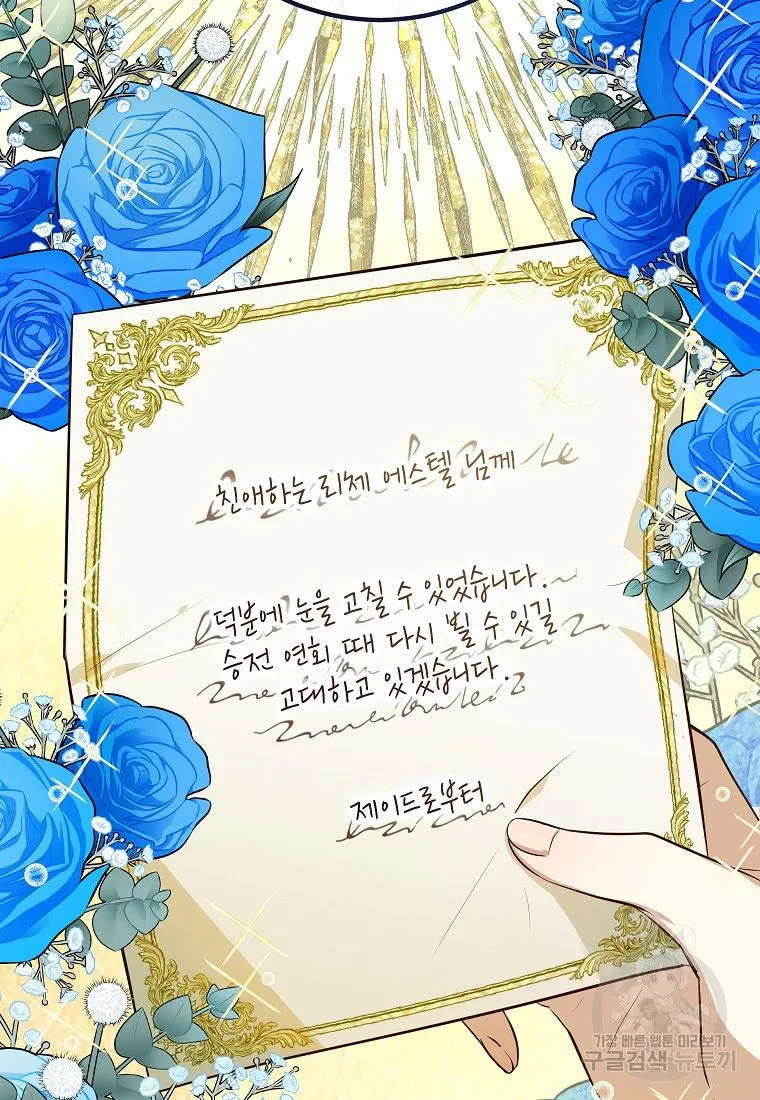 친애하는 리체 에스텔 님께
덕분에 눈을 고칠 수 있었습니다.
승전 연회 때 다시 뵐 수 있길
고대하고 있겠습니다.
제이드로부터
가장 빠른 웹툰 미리보기
구글검색 뉴토끼